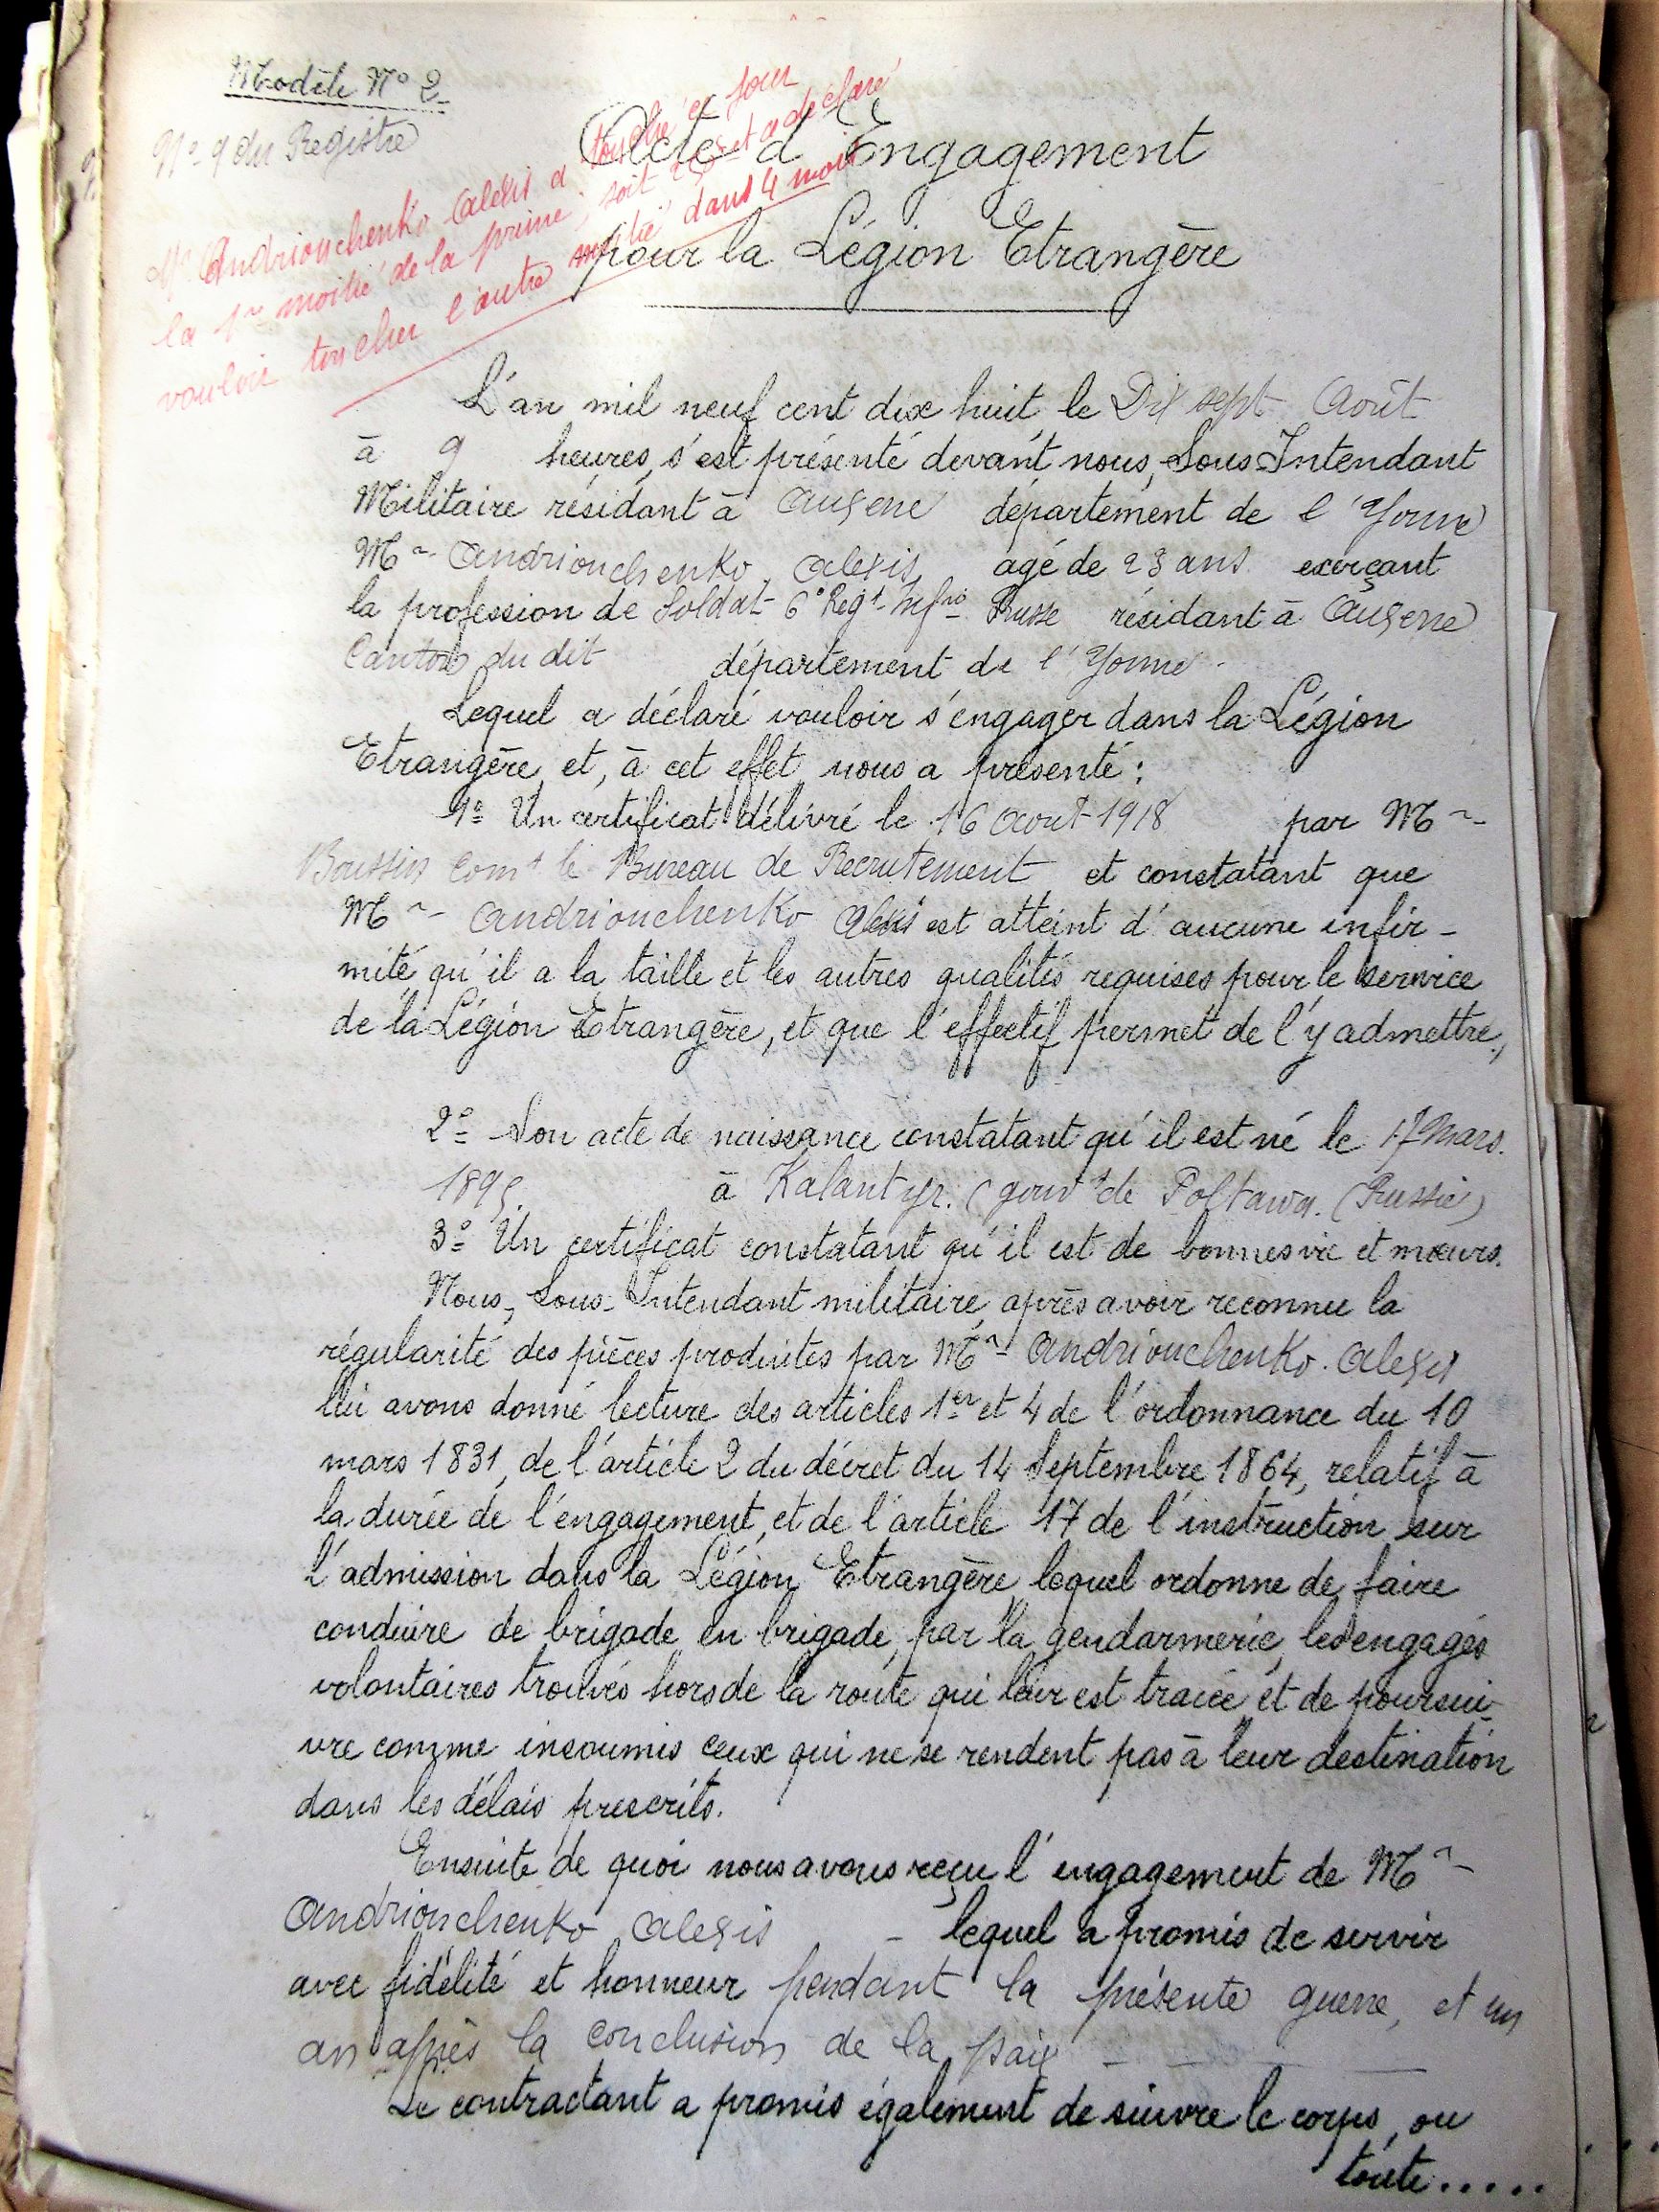 Modèle N° 2
N° 9 du Registre
Mr Andriouchenko Alexis a touché ce jour
la 1re moitié de la prime, soit et a déclaré
vouloir toucher l'autre moitié dans 4 mois
Acte d'Engagement
pour la Légion Etrangère
L'an mil neuf cent dix huit, le Dix sept Août
à 9 heures, s'est présenté devant nous, Sous-Intendant
Militaire résidant à Auxerre département de l'Yonne
Mr Andriouchenko, Alexis, agé de 23 ans exerçant
la profession de Soldat 6e Regt Infrie Russe résidant à Auxerre
Canton du dit département de l'Yonne.
Lequel a déclaré vouloir s'engager dans la Légion
Etrangère, et, à cet effet, nous a présenté :
1° Un certificat délivré le 16 Aout 1918 par Mr
Boussin Comt le Bureau de Recrutement et constatant que
Mr Andriouchenko Alexis est atteint d'aucune infir-
mité qu'il a la taille et les autres qualités requises pour le service
de la Légion Etrangère, et que l'effectif permet de l'y admettre,
2° Son acte de naissance constatant qu'il est né le 17 Mars.
1895. à Kalantyr. (gouvt de Poltawa. (Russie)
3° Un certificat constatant qu'il est de bonnes vie et mœurs.
Nous, Sous-Intendant militaire, après avoir reconnu la
régularité des pièces produites par Mr Andriouchenko. Alexis
lui avons donné lecture des articles 1er et 4 de l'ordonnance du 10
mars 1831, de l'article 2 du décret du 14 Septembre 1864, relatif à
la durée de l'engagement, et de l'article 17 de l'instruction sur
l'admission dans la Légion Etrangère, lequel ordonne de faire
conduire de brigade en brigade, par la gendarmerie, les engagés
volontaires trouvés hors de la route qui leur est tracée et de poursui-
vre comme insoumis ceux qui ne se rendent pas à leur destination
dans les délais prescrits.
Ensuite de quoi nous avons reçu l'engagement de Mr
Andriouchenko Alexis - lequel a promis de servir
avec fidélité et honneur pendant la présente guerre, et un
an après la conclusion de la paix
Le contractant a promis également de suivre le corps, ou
toute.....